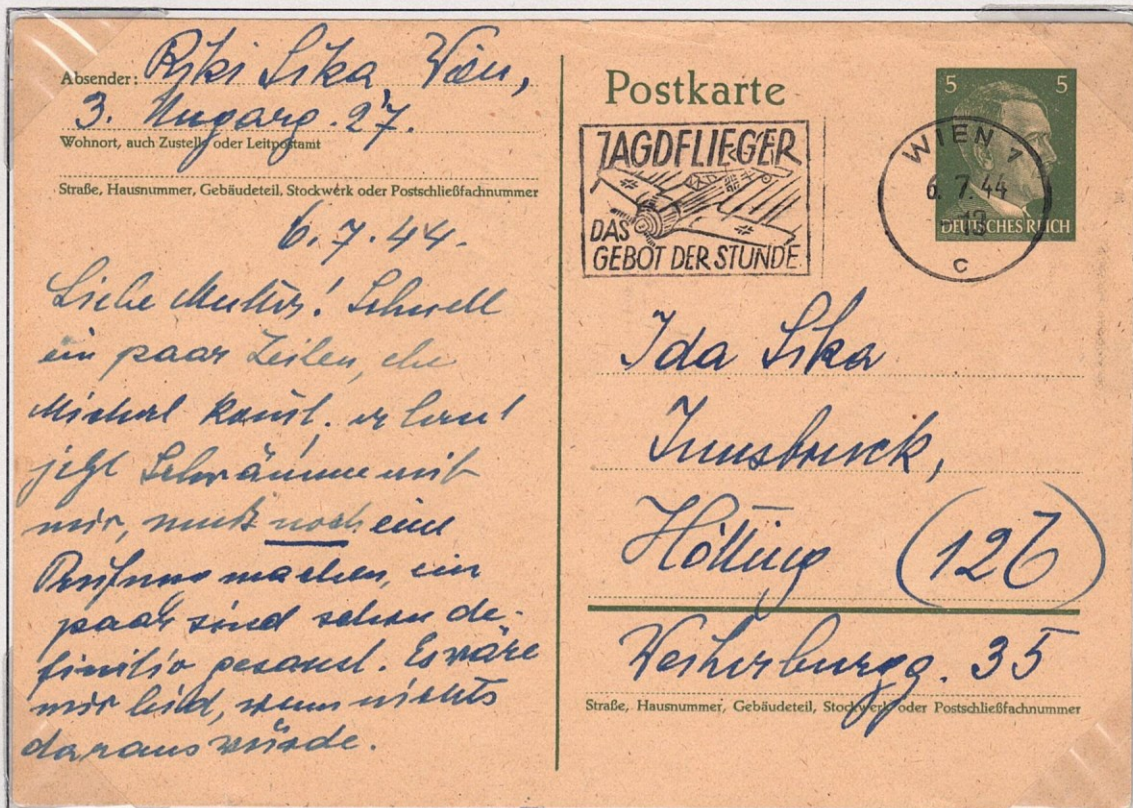 Absender: Riki Sika, Wien,
3. Ungarg. 27.
Wohnort, auch Zustell- oder Leitpostamt
Straße, Hausnummer, Gebäudeteil, Stockwerk oder Postschließfachnummer
6.7.44.
Liebe Mutter! Schnell
ein paar Zeilen, ehe
Michael kommt. er
jetzt mit
mir, muß noch eine
Prüfung machen, ein
paar sind schon de-
finitiv gesandt. Es wäre
mir leid, wenn nichts
daraus würde.
Postkarte
JAGDFLIEGER
DAS
GEBOT DER STUNDE
5 5
DEUTSCHES REICH
WIEN 7
6.7.44
-13
c
Ida Sika
Innsbruck,
Hötting (12b)
Weiherburgg. 35
Straße, Hausnummer, Gebäudeteil, Stockwerk oder Postschließfachnummer